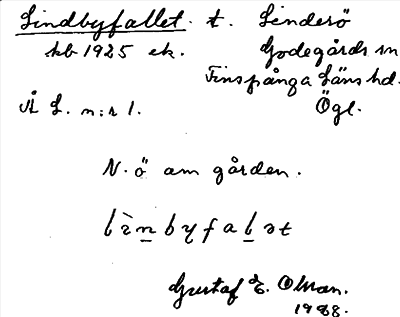 Lindbyfallet. t. Lenderö
kb 1925 ek. Godegårds sn
Finspånga Läns hd.
Å L. n:r 1. Ögl.
N. ö am gården.
lìnbyfalət
Gustaf E. Ohson.
1988.